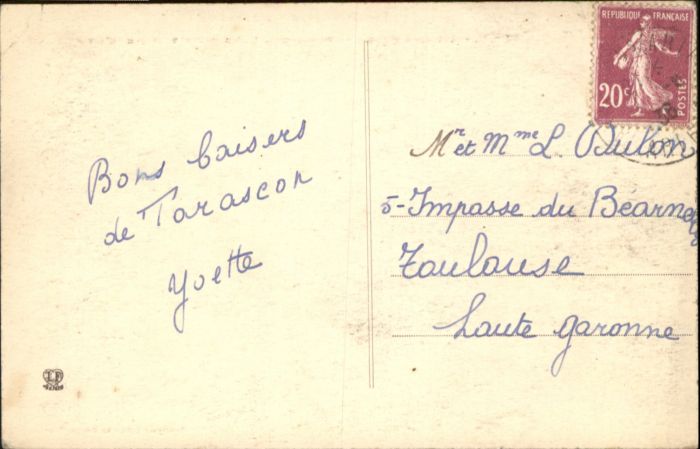 Bons baisers
de Tarascon
Yvette
REPUBLIQUE FRANÇAISE
20c
POSTES
Mr et Mme L.
5-Impasse du Béarnais
Toulouse
haute garonne
LF